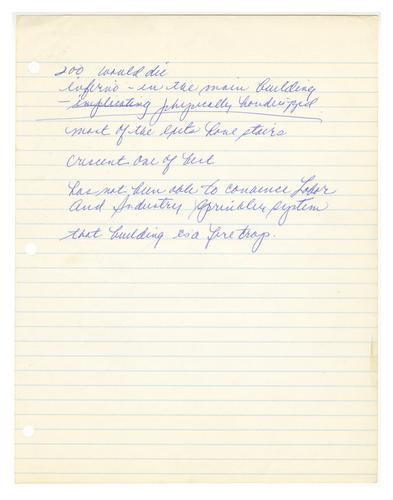 200 would die
inferno - in the main building
- implicating physically handicapped
most of the exits have stairs
one of best
has not been able to convince Labor
and Industry sprinkler system
that building is a fire trap.